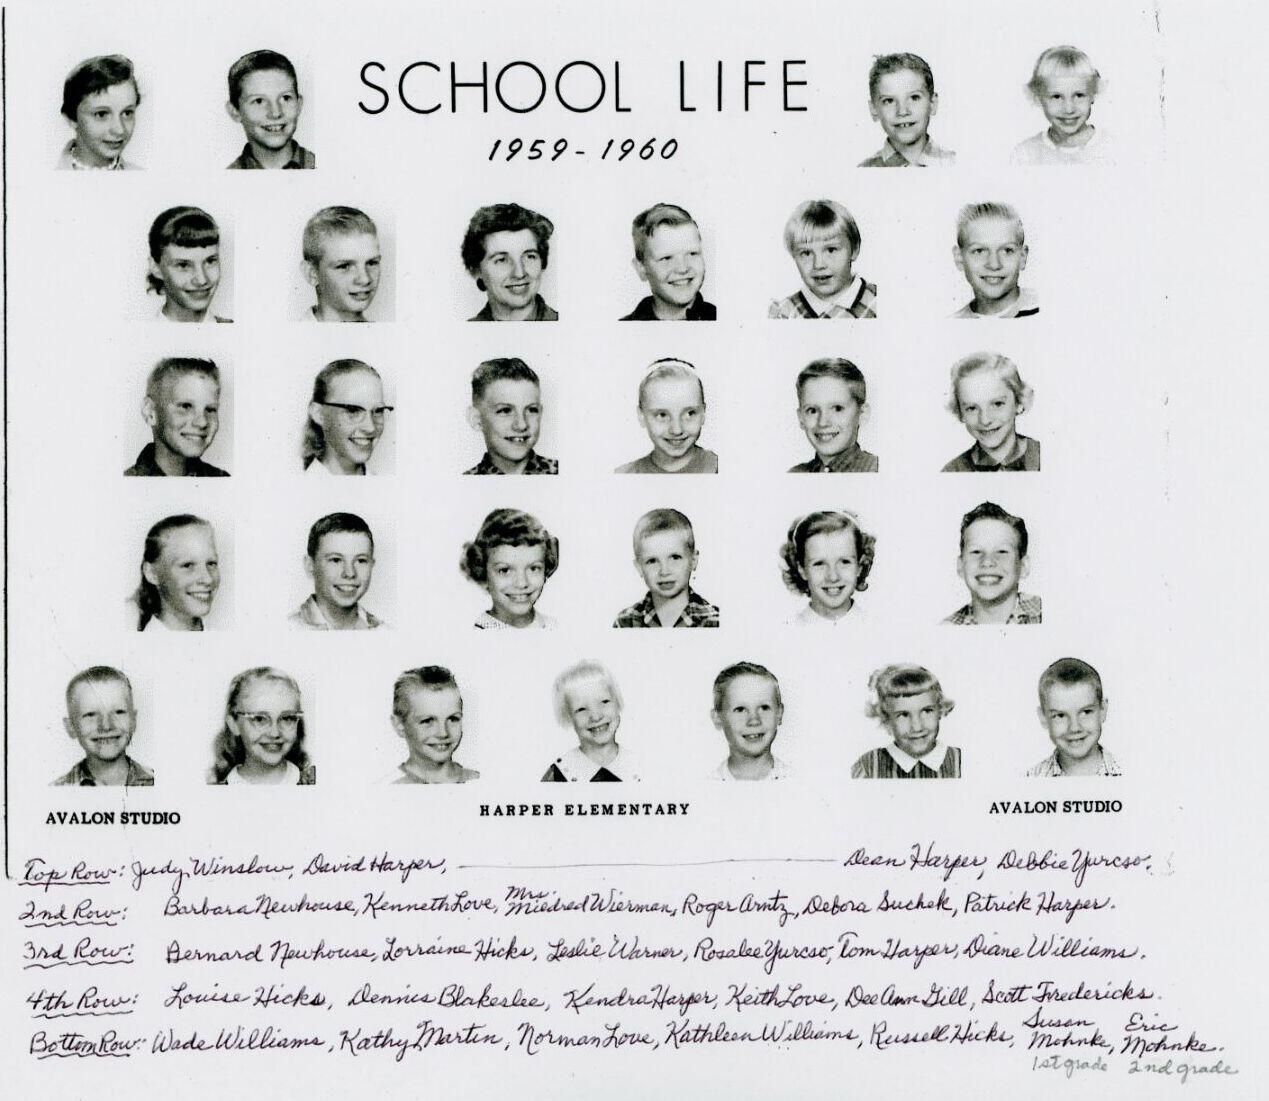 SCHOOL LIFE
1959-1960
AVALON STUDIO
HARPER ELEMENTARY
AVALON STUDIO
Top Row: Judy Winslow, David Harper, Dean Harper, Debbie Yurcso.
2nd Row: Barbara Newhouse, Kenneth Love, Mrs. Mildred Wierman, Roger Arntz, Debora Suchek, Patrick Harper.
3rd Row: Bernard Newhouse, Lorraine Hicks, Leslie Warner, Rosalee Yurcso, Tom Harper, Diane Williams.
4th Row: Louise Hicks, Dennis Blakeslee, Kendra Harper, Keith Love, Dee Ann Gill, Scott Fredericks.
Bottom Row: Wade Williams, Kathy Martin, Norman Love, Kathleen Williams, Russell Hicks, Susan Mohnke, Eric Mohnke.
1st grade 2nd grade